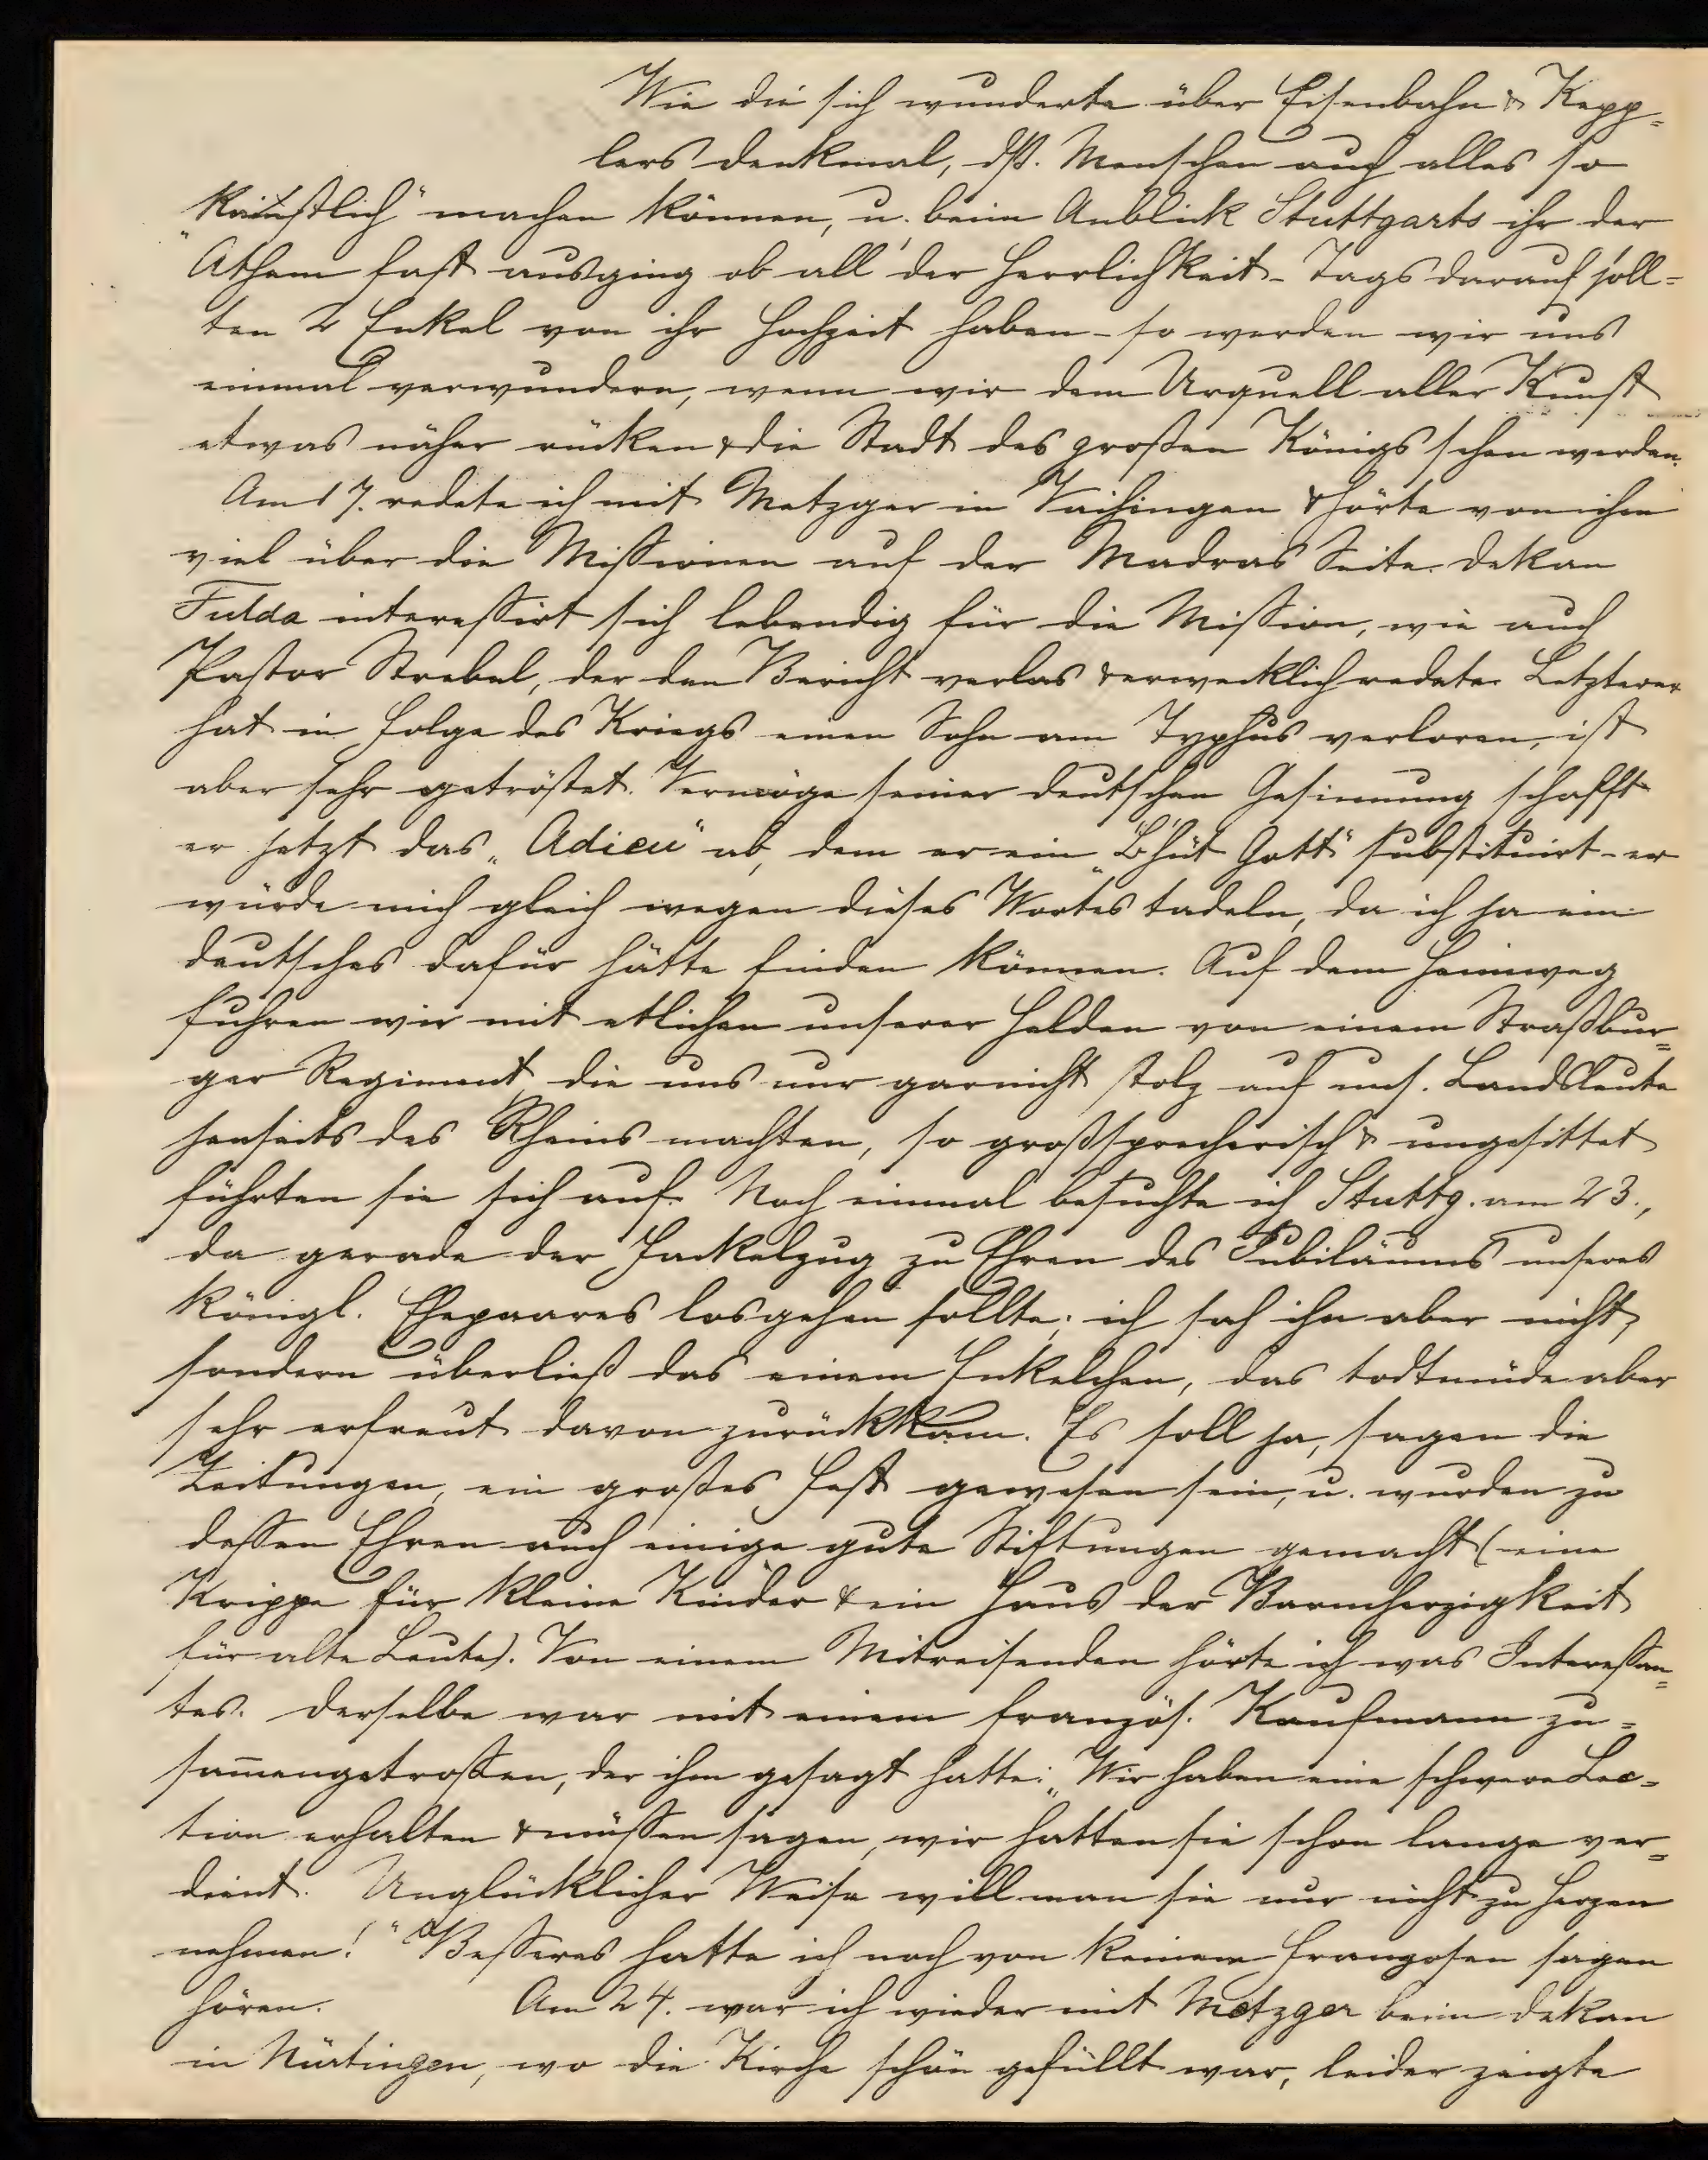 Wie die sich wunderte über Eisenbahn & Kepp=
lers Denkmal, dß. Menschen auch alles so
"künstlich" machen können, u. beim Anblick Stuttgarts ihr der
Athem fast ausging ob all' der Herrlichkeit - Tags darauf soll=
ten 2 Enkel von ihr Hochzeit haben - so werden wir uns
einmal verwundern, wenn wir dem Urquell aller Kunst
etwas näher rücken & die Stadt des großen Königs sehen werden.
Am 17. redete ich mit Metzger in Vaihingen & hörte von ihm
viel über die Missionen auf der Madras Seite. Dekan
Fulda interessirt sich lebendig für die Mission, wie auch
Pastor Strebel, der den Bericht verlas & erwecklich redete. Letzterer
hat in Folge des Kriegs einen Sohn am Typhus verloren, ist
aber sehr getröstet. Vermöge seiner deutschen Gesinnung schafft
er jetzt das "Adieu" ab, dem er ein "B'hüt Gott" substituirt - er
würde mich gleich wegen dieses Wortes tadeln, da ich ja ein
deutsches dafür hätte finden können. Auf dem Heimweg
fuhren wir mit etlichen unserer Helden von einem Straßbur=
ger Regiment, die uns nur gar nicht stolz auf uns. Landsleute
jenseits des Rheins machten, so großsprecherisch & ungesittet
führten sie sich auf. Noch einmal besuchte ich Stuttg. am 23.,
da gerade der Fackelzug zu Ehren des Jubiläums unseres
königl. Ehepaares losgehen sollte; ich sah ihn aber nicht,
sondern überließ das einem Enkelchen, das todtmüde aber
sehr erfreut davon zurückkam. Es soll ja, sagen die
Zeitungen, ein großes Fest gewesen sein, u. wurden zu
dessen Ehren auch einige gute Stiftungen gemacht (eine
Krippe für kleine Kinder & ein Haus der Barmherzigkeit
für alte Leute). Von einem Mitreisenden hörte ich was Interessan=
tes. Derselbe war mit einem französ. Kaufmann zu=
sam̅engetroffen, der ihm gesagt hatte: "Wir haben eine schwere Lec=
tion erhalten & müssen sagen, wir hatten sie schon lange ver=
dient. Unglücklicher Weise will man sie nur nicht zu Herzen
nehmen!" Besseres hatte ich noch von keinem Franzosen sagen
hören. Am 24. war ich wieder mit Metzger beim Dekan
in Nürtingen, wo die Kirche schön gefüllt war, leider zeigte